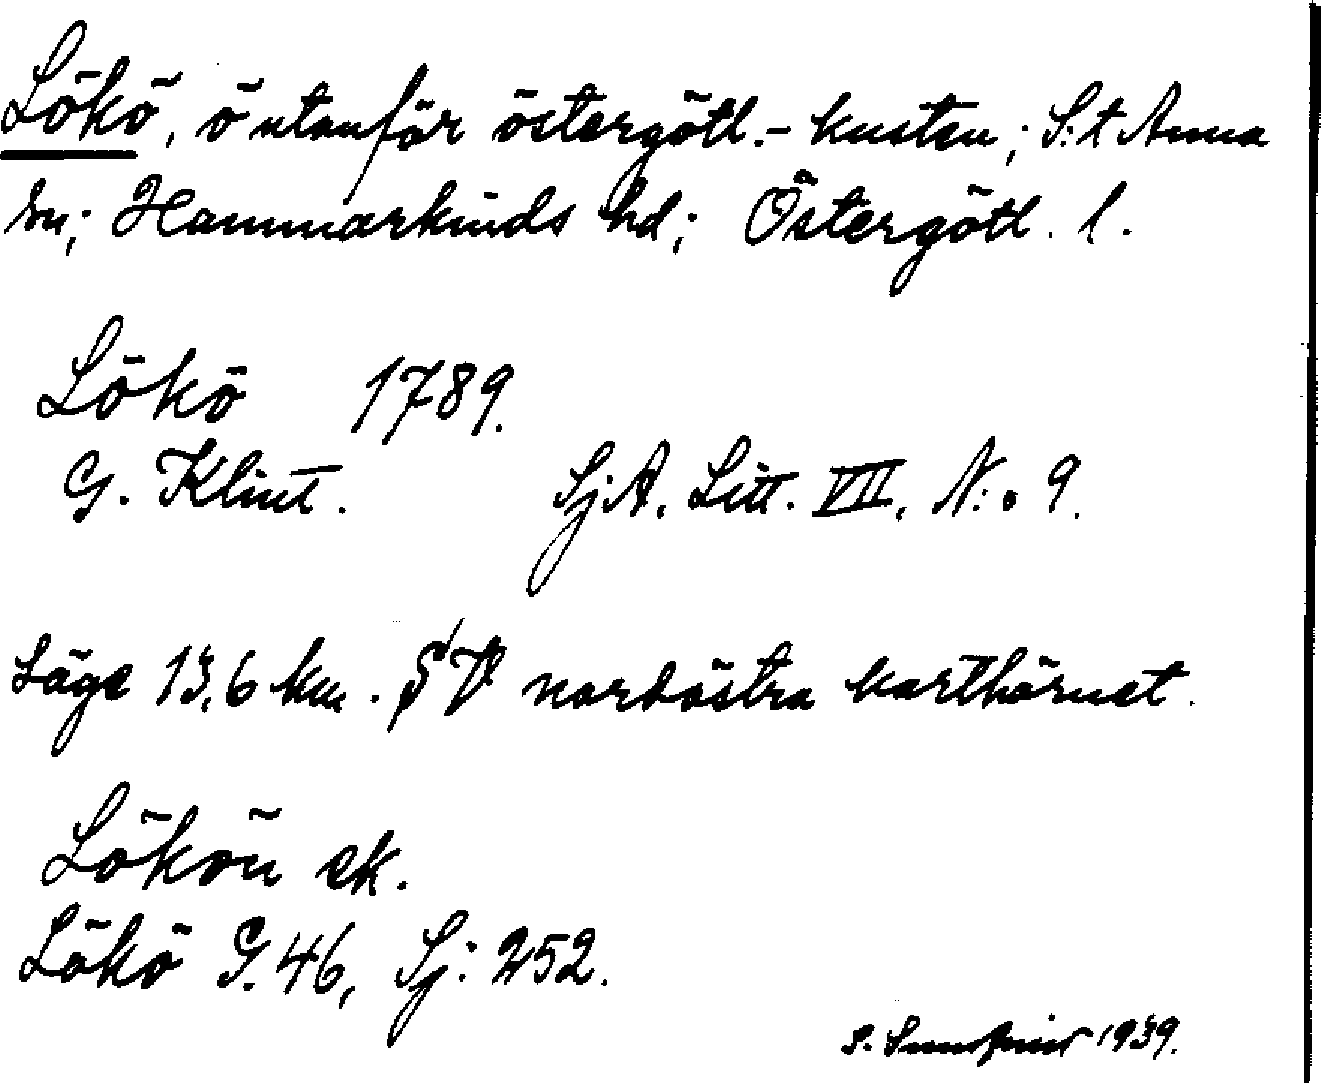 Lökö, ö utanför östergötl.- kusten; S:t Anna
sn; Hammarkinds hd; Östergötl. l.
Lökö 1789.
G. Klint. SjA. Litt. VII. N:o 9.
Läge 13,6 km. SV nordöstra karthörnet.
Lökön ek.
Lökö G. 46, Sj: 252.
S. 1939.